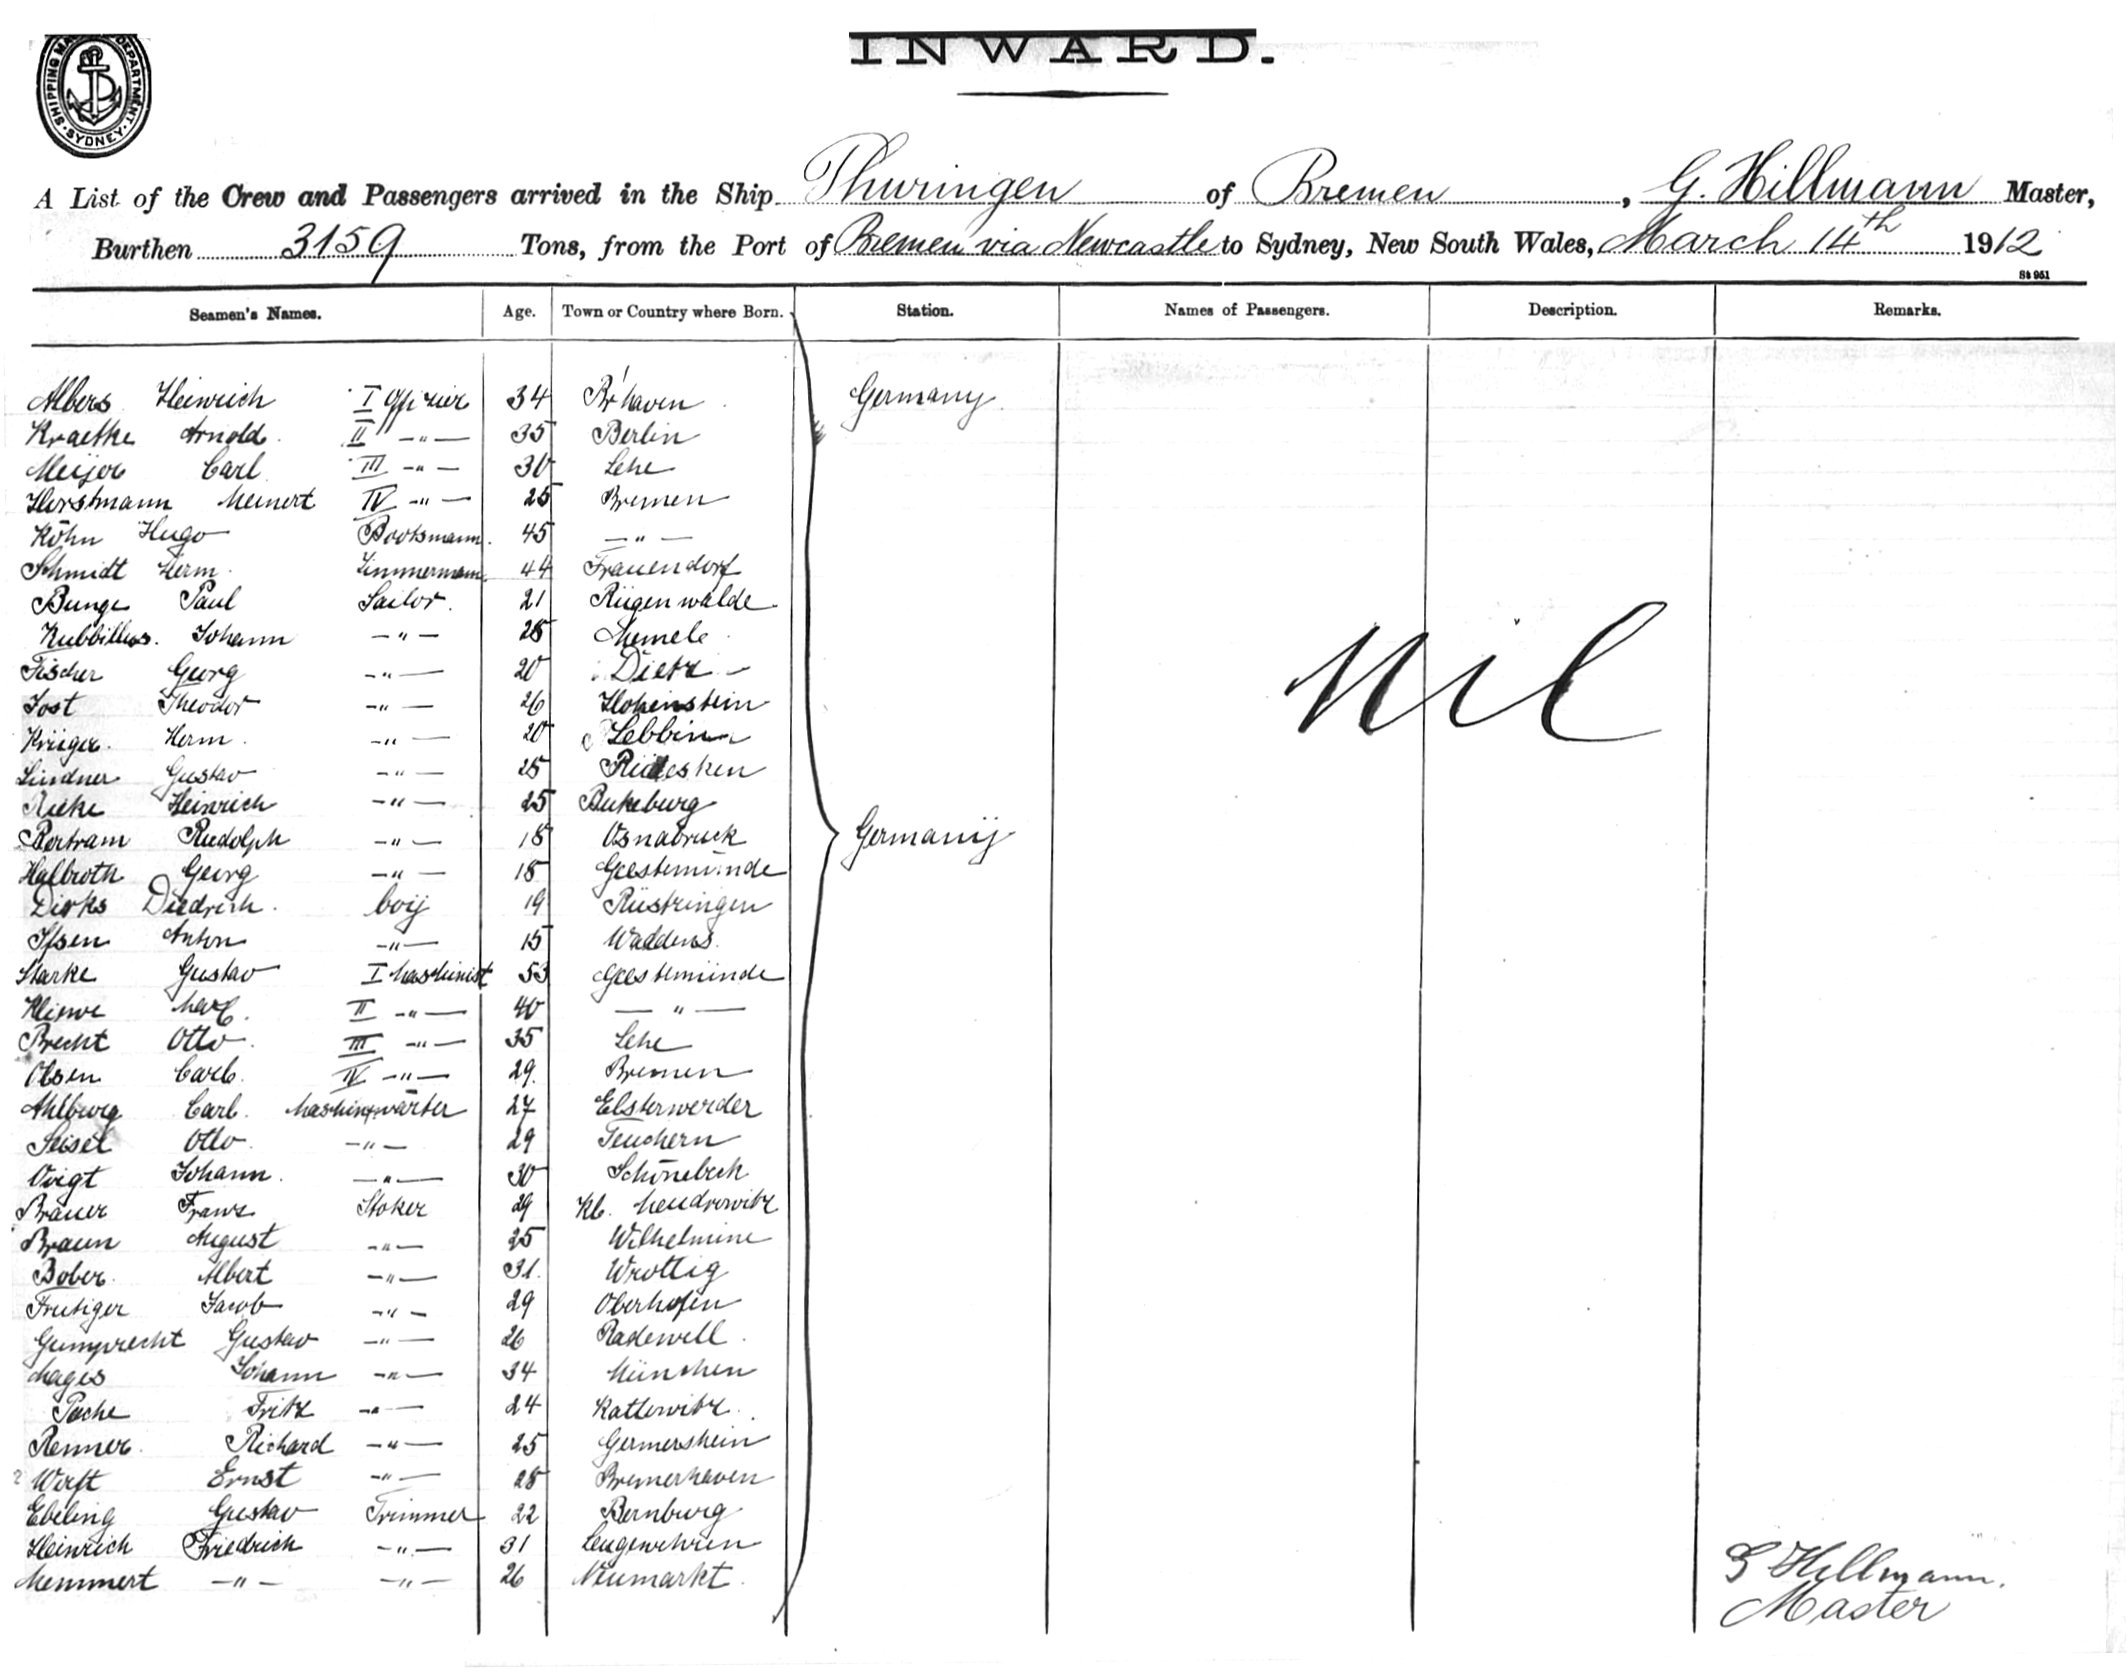 SHIPPING MA DEPARTMENT · SYDNEY ·
INWARD.
A List of the Crew and Passengers arrived in the Ship Thuringen of Bremen, G. Hillmann Master,
Burthen 3159 Tons, from the Port of Bremen via Newcastle to Sydney, New South Wales, March 14th 1912
St 951
Seamen's Names. Age. Town or Country where Born. Station. Names of Passengers. Description. Remarks.
Albers Heinrich I Offizier 34 Br'haven Germany
Kraetke Arnold II -"- 35 Berlin
Meijer Carl III -"- 30 Lehe
Horstmann Meinert IV -"- 25 Bremen
Köhn Hugo Bootsmann. 45 -"-
Schmidt Herm. Zimmermann 44 Frauendorf
Bunge Paul Sailor. 21 Rügenwalde
Kubbillus. Johann -"- 28 Memele
Fischer Georg -"- 20 Dietz
Jost Theodor -"- 26 Hohenstein
Krüger. Herm. -"- 20 Lebbin
Lindner Gustav -"- 25
Rieke Heinrich -"- 25 Bukeburg
Bertram Rudolph -"- 18 Osnabruck Germany
Halbroth Georg -"- 18 Geestemünde
Dirks Diedrich. boij 19 Rüstringen
Ifsen Anton -"- 15 Waddens.
Starke Gustav I Maschinist 53 Geestemünde
Max II -"- 40 -"-
Brecht Otto. III -"- 35 Lehe
Olsen Carl. IV -"- 29. Bremen
Ahlburg Carl. Maschinenwärter 27 Elsterwerder
Seisel Otto. -"- 29 Teuchern
Voigt Johann. -"- 30 Schönebeck
Bräuer Franz Stoker 29 Kl.
Braun August -"- 25 Wilhelmine
Bober. Albert -"- 31. Wrottig
Frutiger Jacob -"- 29 Oberhofen
Gumprecht Gustav -"- 26 Radewell.
Mages Johann -"- 34 München
Pache Fritz -"- 24 Kattowitz.
Renner. Richard -"- 25 Germersheim
Werft Ernst -"- 28 Bremerhaven
Ebeling Gustav Trimmer 22 Bernburg
Heinrich Friedrich -"- 31
Memmert -"- -"- 26 Neumarkt.
Nil
G Hillmann.
Master